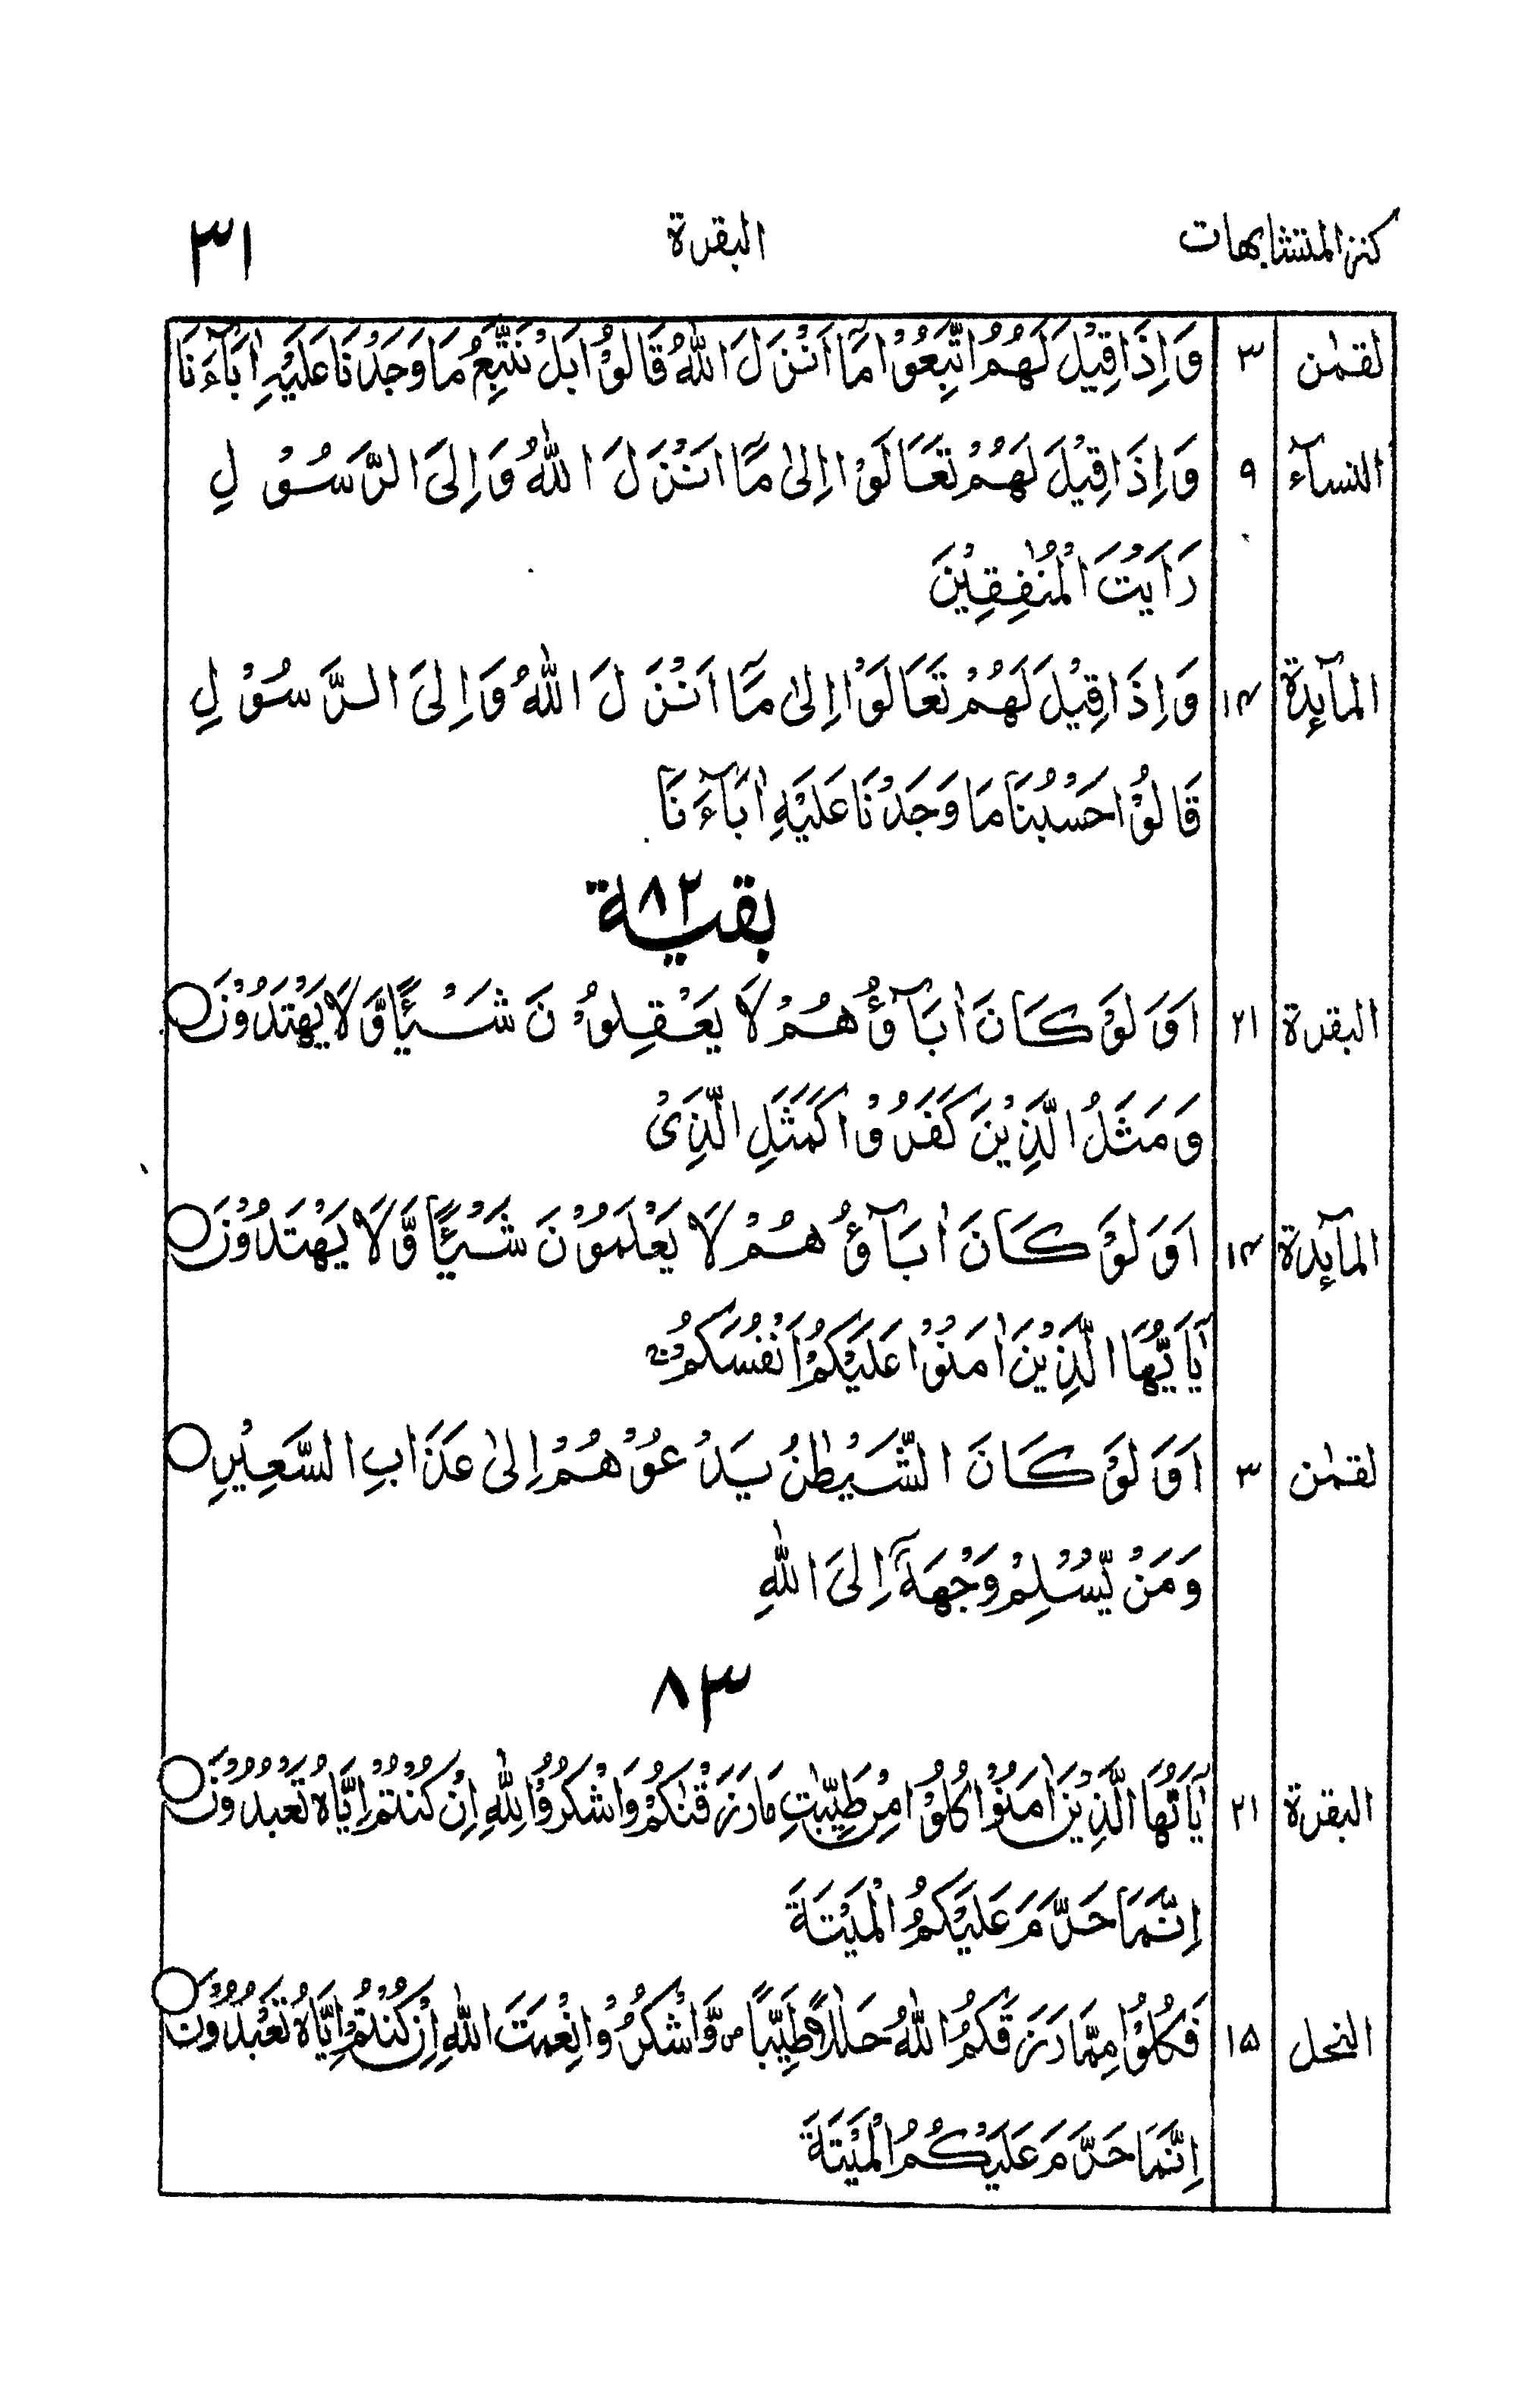 كنز المتشابهات البقرة ٣١
لقمٰن ٣ وَاِذَا قِيْلَ لَهُمُ اتَّبِعُوْا مَآ اَنْزَلَ اللّٰهُ قَالُوْا بَلْ نَتَّبِعُ مَا وَجَدْنَا عَلَيْهِ اٰبَآءَنَا
النسآء ٩ وَاِذَا قِيْلَ لَهُمْ تَعَالَوْا اِلٰى مَآ اَنْزَلَ اللّٰهُ وَاِلَى الرَّسُوْلِ
رَاَيْتَ الْمُنٰفِقِيْنَ
المآئدة ١٤ وَاِذَا قِيْلَ لَهُمْ تَعَالَوْا اِلٰى مَآ اَنْزَلَ اللّٰهُ وَاِلَى الرَّسُوْلِ
قَالُوْا حَسْبُنَا مَا وَجَدْنَا عَلَيْهِ اٰبَآءَنَا
بقية ٨٢
البقرة ٢١ اَوَلَوْ كَانَ اٰبَآؤُهُمْ لَا يَعْقِلُوْنَ شَيْـًٔا وَّلَا يَهْتَدُوْنَ ○
وَمَثَلُ الَّذِيْنَ كَفَرُوْا كَمَثَلِ الَّذِىْ
المآئدة ١٤ اَوَلَوْ كَانَ اٰبَآؤُهُمْ لَا يَعْلَمُوْنَ شَيْـًٔا وَّلَا يَهْتَدُوْنَ ○
يٰٓاَيُّهَا الَّذِيْنَ اٰمَنُوْا عَلَيْكُمْ اَنْفُسَكُمْ
لقمٰن ٣ اَوَلَوْ كَانَ الشَّيْطٰنُ يَدْعُوْهُمْ اِلٰى عَذَابِ السَّعِيْرِ ○
وَمَنْ يُّسْلِمْ وَجْهَهٗٓ اِلَى اللّٰهِ
٨٣
البقرة ٢١ يٰٓاَيُّهَا الَّذِيْنَ اٰمَنُوْا كُلُوْا مِنْ طَيِّبٰتِ مَا رَزَقْنٰكُمْ وَاشْكُرُوْا لِلّٰهِ اِنْ كُنْتُمْ اِيَّاهُ تَعْبُدُوْنَ ○
اِنَّمَا حَرَّمَ عَلَيْكُمُ الْمَيْتَةَ
النحل ١٥ فَكُلُوْا مِمَّا رَزَقَكُمُ اللّٰهُ حَلٰلًا طَيِّبًا ص وَّاشْكُرُوْا نِعْمَتَ اللّٰهِ اِنْ كُنْتُمْ اِيَّاهُ تَعْبُدُوْنَ ○
اِنَّمَا حَرَّمَ عَلَيْكُمُ الْمَيْتَةَ